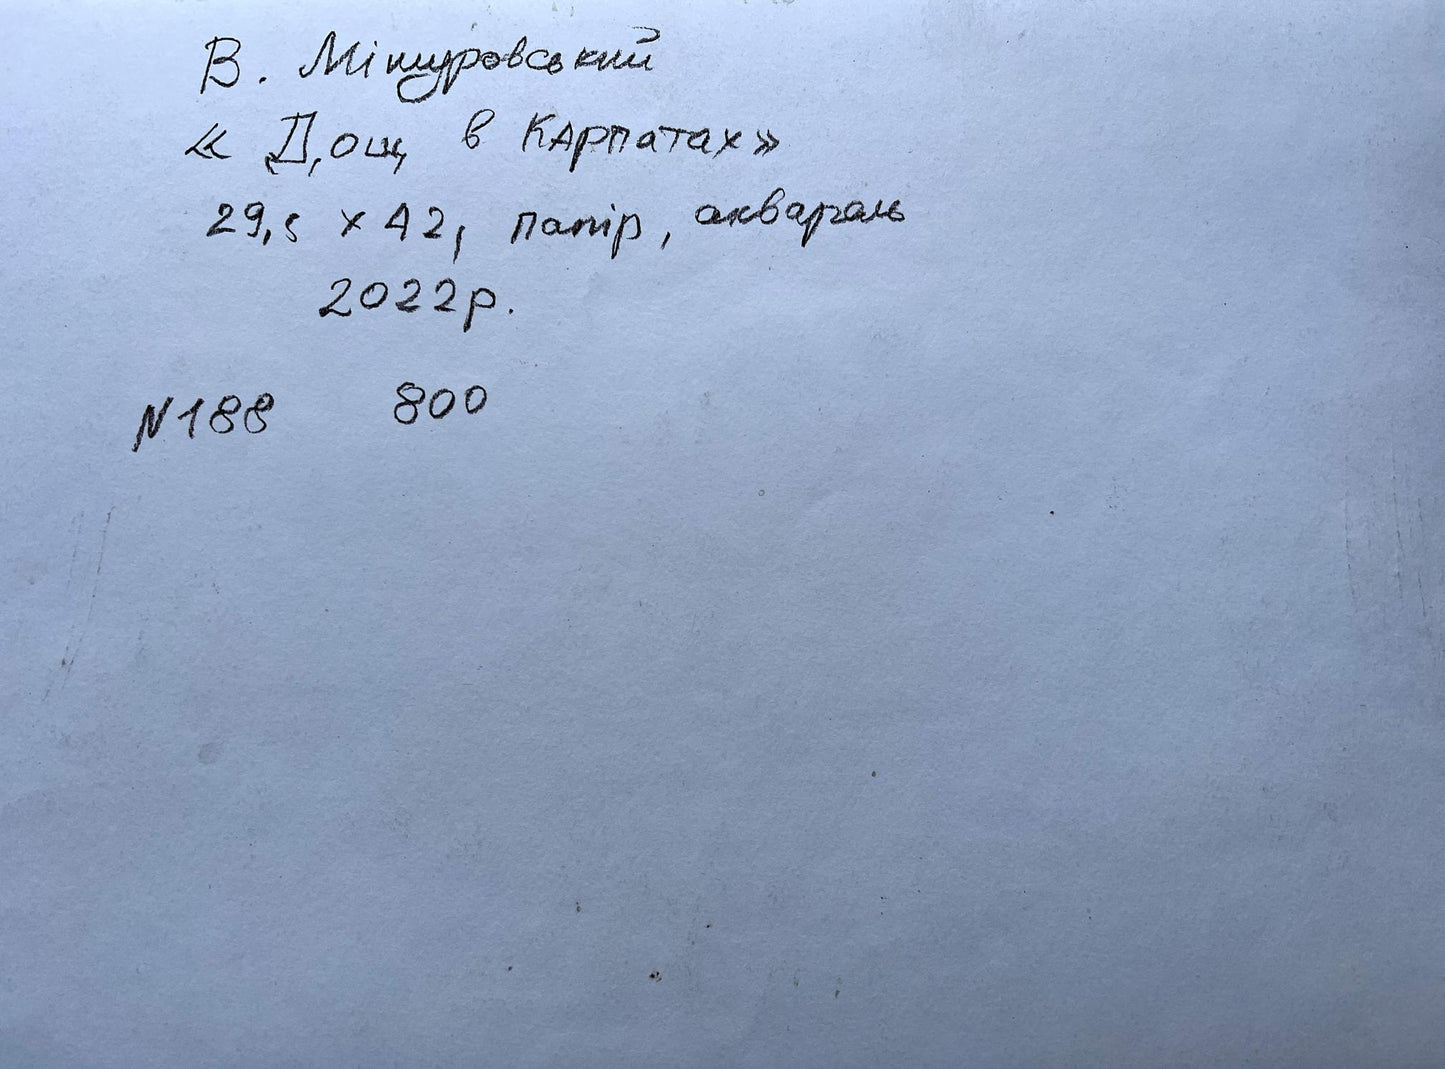 В. Мішуровський
« Дощ в Карпатах»
29,5 х 42, папір, акварель
2022р.
N188 800